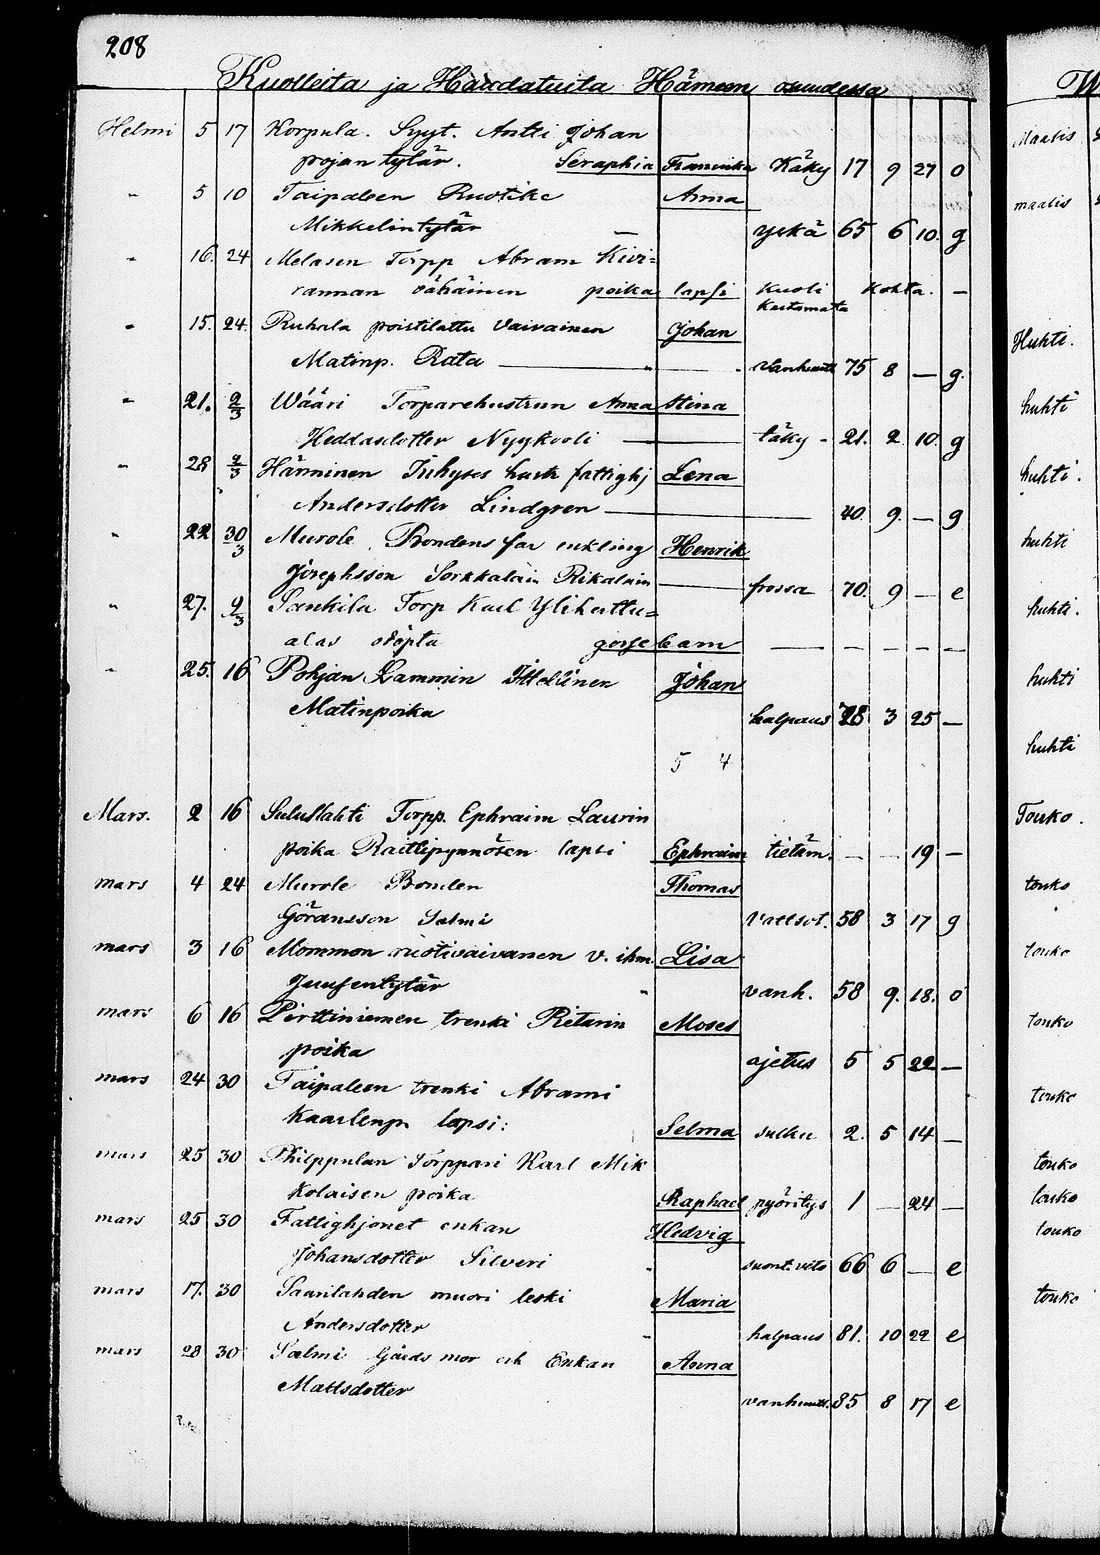 208
Kuolleita ja Haudatuita Hämeen osuudessa
Helmi 5 17 Korpula. Syyt. Antti Johan
pojan tytär. Seraphia Fransiska Käky 17 9 27 o
" 5 10 Taipaleen Ruotike Anna
Mikkelintytär yskä 65 6 10. g
" 16. 24 Melasen Torpp Abram Kivi=
rannan vähäinen poika lapsi kuoli kohta. —
kastamata
" 15. 24. Ruhala poistilattu Vaivainen Johan
Matinp. Rata — vanhuutt 75 8 — g.
" 21. 2/3 Wääri Torparehustrun Anna Stina
Heddasdotter Nygkooli — täky - 21. 2. 10. g
" 28 2/3 Hänninen Inhyses hust fattighj Lena
Andersdotter Lindgren — 40. 9. — g
" 22 30/3 Murole Bondens far enkling Henrik
Josephsson Sorkkalain Rikalain — frossa 70. 9 — e
" 27. 9/3 Sankila Torp Karl Ylihattu=
alas odöpta gossebarn — — — — —
" 25. 16 Pohjan Lammin Itellinen Johan
Matinpoika halpaus 28 3 25 —
5 4
Mars. 2 16 Suluslahti Torpp. Ephraim Laurin
poika Raitlipynnösen lapsi Ephraim tietäm. — — 19 —
mars 4 24 Murole Bonden Thomas
Göransson Salmi Vattsot. 58 3 17 g
mars 3 16 Mommon ruotivaivanen v. ihm. Lisa
Juusentytär " vanh. 58 9. 18. o
mars 6 16 Pirttiniemen trenki Rietarin Moses
poika ajetus 5 5 22 —
mars 24 30 Taipaleen trenki Abrami
Kaarlenp. lapsi: Selma sulku 2. 5 14 —
mars 25 30 Philppulan Torppari Karl Mik
kolaisen poika Raphael pyöritys 1 — 24 —
mars 25 30 Fattighjonet enkan Hedvig
Johansdotter Silveri " suont. veto 66 6 — e
mars 17. 30 Saarilahden muori leski Maria
Andersdotter " halpaus 81. 10 22 e
mars 28 30 Salmi Gårds mor och Enkan Anna
Mattsdotter vanhuutt. 85 8 17 e
Maalis
maalis
Huhti.
huhti
huhti.
huhti
huhti.
huhti
huhti
Touko.
touko
touko
touko
touko
touko
touko
touko
touko